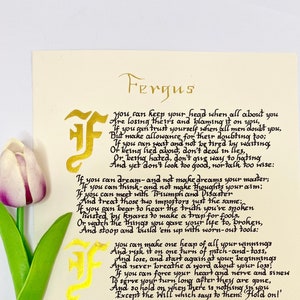 Fergus
If you can keep your head when all about you
Are losing theirs and blaming it on you,
If you can trust yourself when all men doubt you,
But make allowance for their doubting too;
If you can wait and not be tired by waiting,
Or being lied about, don't deal in lies,
Or, being hated, don't give way to hating
And yet don't look too good, nor talk too wise:
If you can dream - and not make dreams your master;
If you can think - and not make thoughts your aim;
If you can meet with Triumph and Disaster
And treat those two impostors just the same;
If you can bear to hear the truth you've spoken
Twisted by knaves to make a trap for fools,
Or watch the things you gave your life to, broken,
And stoop and build 'em up with worn-out tools:
If you can make one heap of all your winnings
And risk it on one turn of pitch-and-toss,
And lose, and start again at your beginnings
And never breathe a word about your loss;
If you can force your heart and nerve and sinew
To serve your turn long after they are gone,
And so hold on when there is nothing in you
Except the Will which says to them: 'Hold on!'